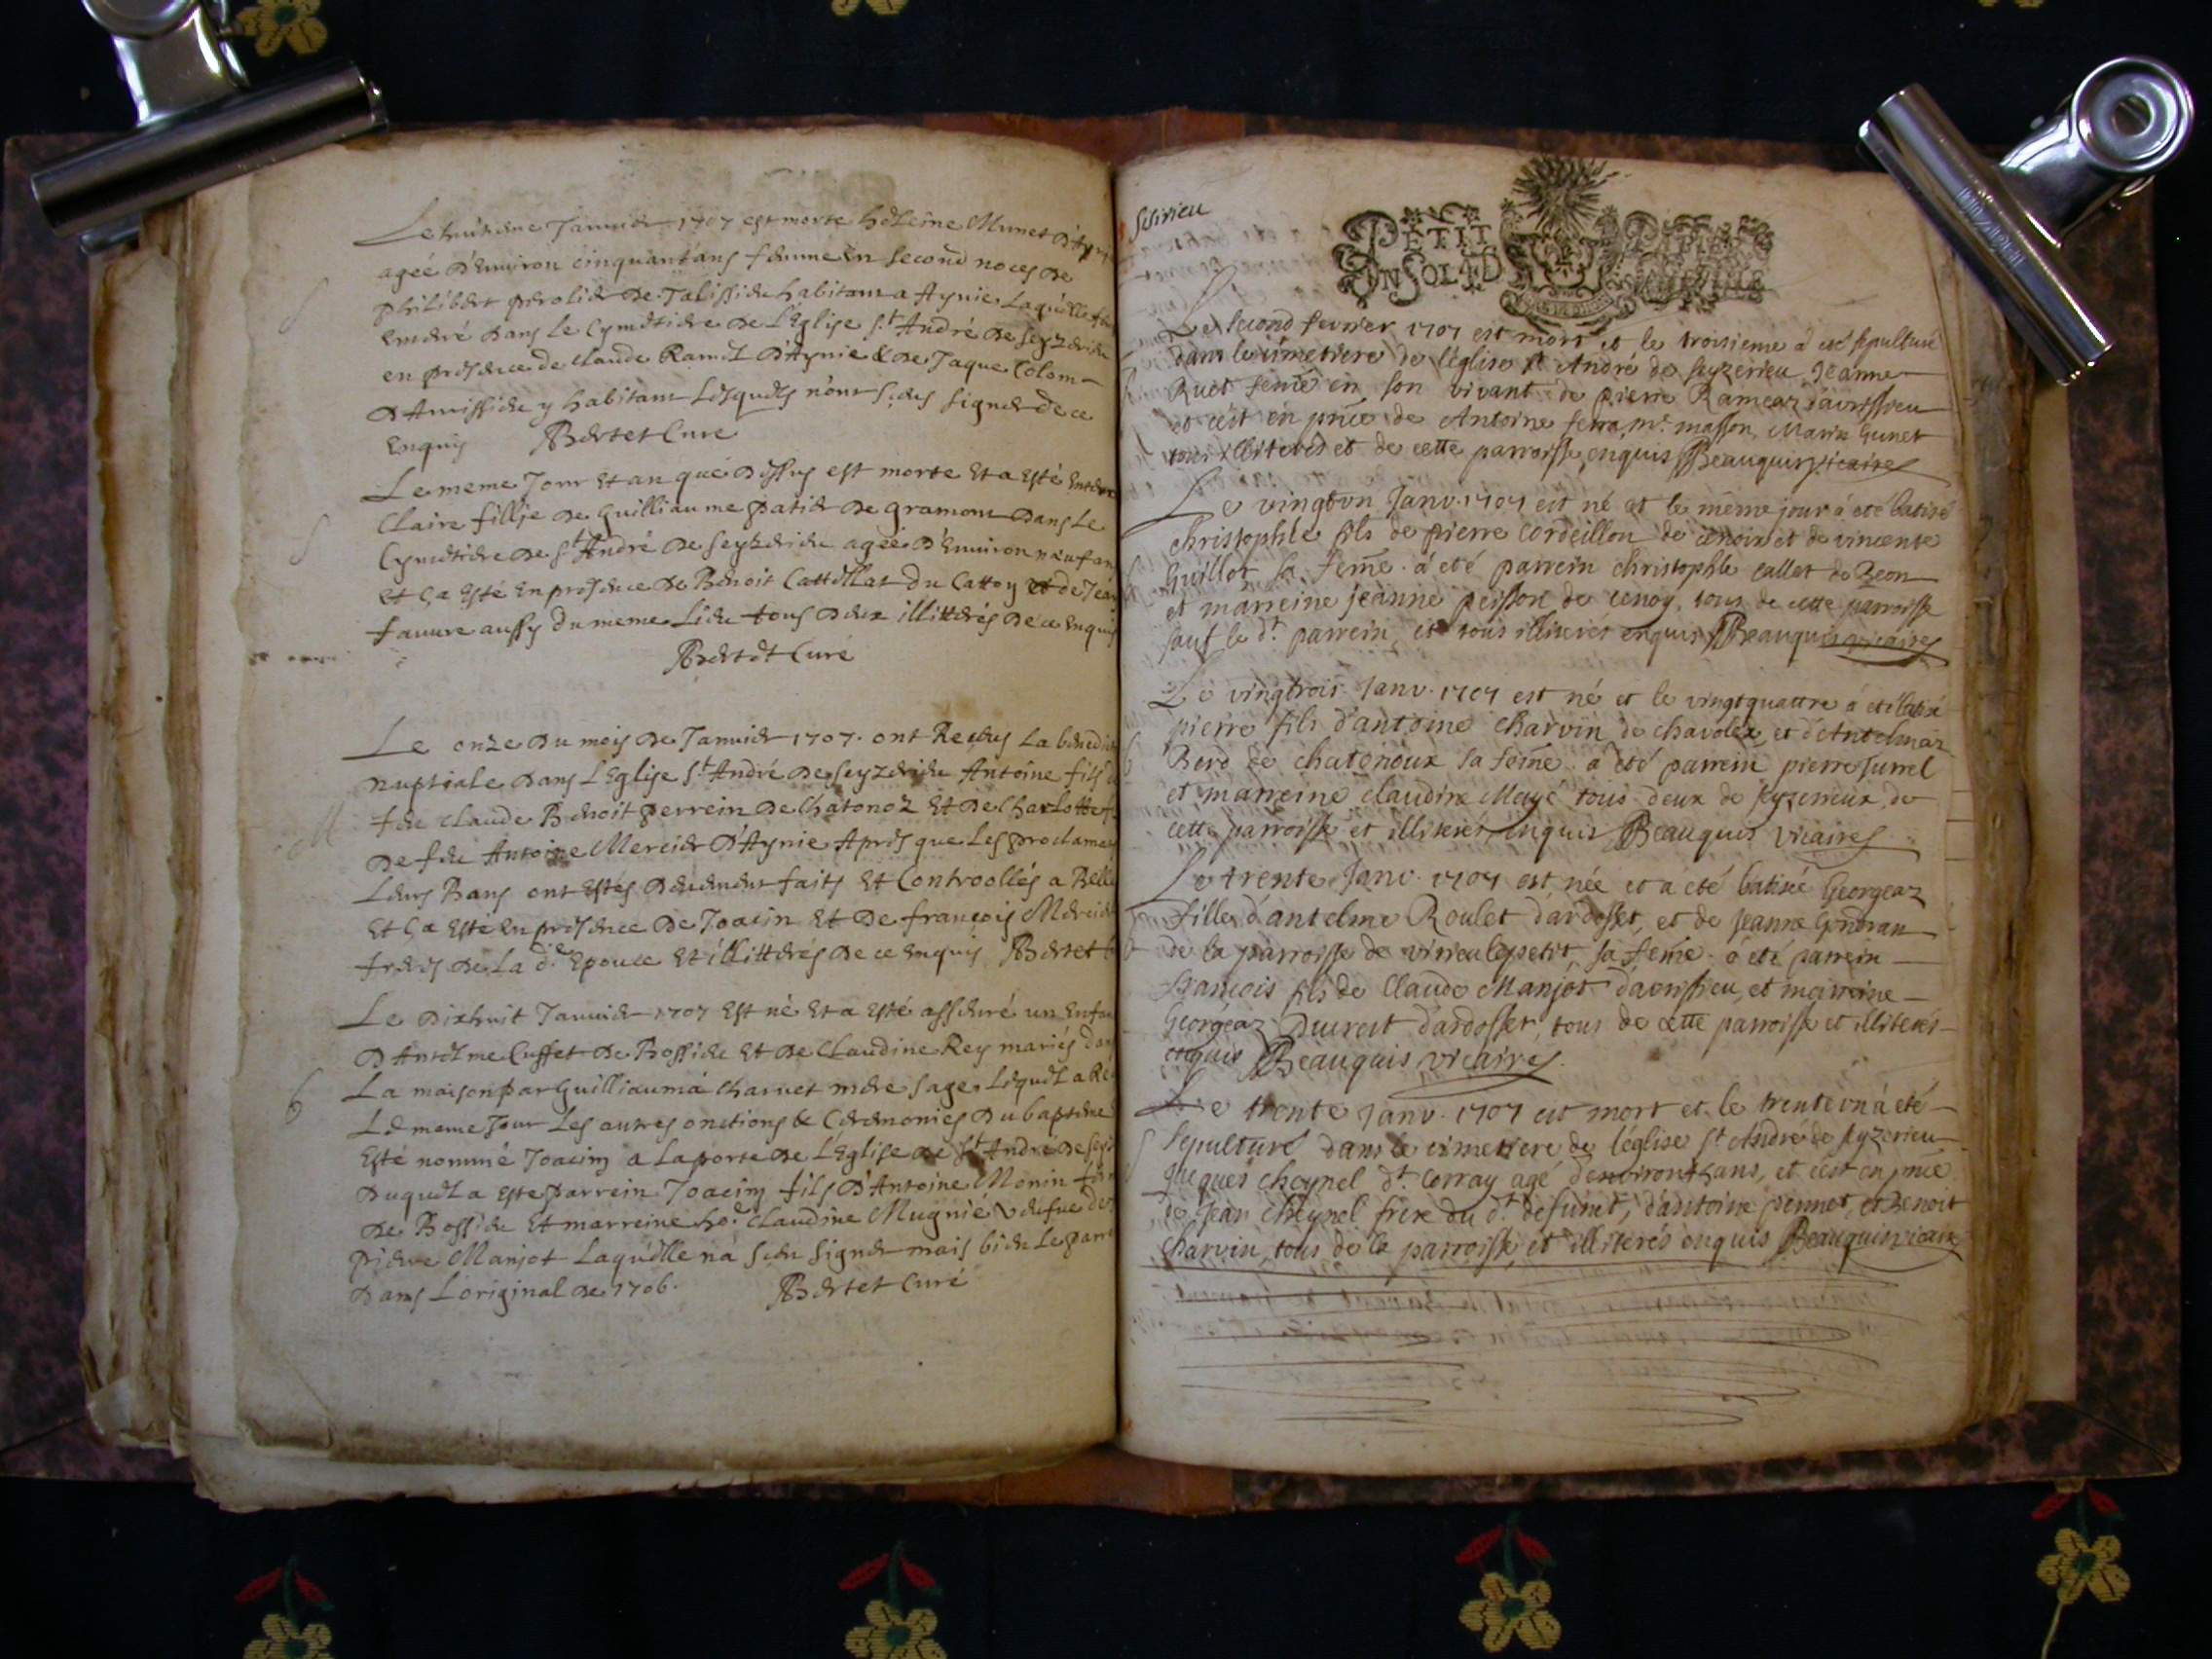 Le huitieme Januier 1707 est morte heleine Munet d'Ayni
ageé d'Enuiron cinquant ans femme en second noces de
philibert perolier de Talissieu habitant a Aynie Laquelle
Enterré dans Le Cymetiere de L'Eglise St André de seyzerieu
en presence de claude Ramel d'Aynie & de Jaque Colom
D'Amissieu y habitant Lesquels n'ont sceus signer de ce
Enquis Bertet Cure
S
Le meme Jour Et an que dessus est morte Et a Esté Enterré
Claire fillje de Guilliaume patier de gramont dans Le
Cymetiere de St André de Seyzerieu ageé d'Enuiron neuf an
Et ça Esté En presence de Benoit Cattillat du Catton et de Jean
fauure aussy du meme Lieu tous deux illitterés de ce Enquis
Bertet Curé
S
Le onze du mois de Januier 1707. ont Receus La benedi
nuptiale dans L'Eglise St André de seyzerieu Antoine fils
feu claude Benoit perrein de Chatonoz Et de Charlotte f
de feu Antoine Mercier D'Aynie Apres que Les proclame
Leurs Bans ont Estés deuement faits Et Controollés a Belle
Et ça Esté En presence de Joacin Et de françois Mercier
freres de La de Epouce Et illitterés de ce Enquis Bertet
M
Le dixhuit Januier 1707 Est né Et a Esté asseuré un Enfan
D'Antelme Cuffet de Bossieu Et de Claudine Rey mariés dan
La maison par Guilliauma Charuet mere sage Lequel a Re
Le meme Jour Les autres onctions & Ceremonies du bapteme
Esté nommé Joacim a La porte de L'Eglise de St André de sey
Duquel a Este parrein Joacim fils D'Antoine Monin
De Bossieu Et marreine ho.e Claudine Mugnié Vefue de
Pierre Manjot Laquelle na sceu signer mais bien Le parr
Dans L'original de 1706. Bertet Curé
6
PETIT PAPIER
IN SOLID
Le second fevrier 1707 est mort et le troisieme a eté sepulturé
dans le cimetiere de l'église st André de seyzerieu Jeanne
Ruet feme en son vivant de pierre Rameaz d'avrissieu
et c'est en pnce de Antoine ferra, mr. masson, Marin Gunet
tous illiterés et de cette parroisse, enquis Beauquis vicaire
Le vingt vn Janv. 1707 est né et le méme jour à eté batisé
christophle fils de pierre Cordeillon de cenoix et de vincente
Guillot sa feme. á eté parrein christophle callet de Beon
et marreine jeanne peisson de cenoy, tous de cette parroisse
sauf le dt parrein, et tous illiterés enquis Beauquis vicaire
Le vingtrois Janv. 1707 est né et le vingtquattre á eté batisé
pierre fils d'antoine charvin de chavolex, et d'Antelmaz
Berd de chatonoux sa feme. a eté parrein pierre Jurrel
et marreine claudine Mayé tous deux de seyzerieux, de
cette parroisse et illiterés enquis Beauquis vicaire
Le trente Janv. 1707 est née et a été batiseé Georgeaz
fille d'antelme Roulet d'ardosset, et de jeanne Gondran
de la parroisse de virieu le petit, sa feme. a eté parrein
francois fils de Claude Manjot d'avrissieu, et marreine
Georgeaz Ducret d'ardosset, tous de cette parroisse et illiterés
enquis Beauquis vicaire
Le trente Janv. 1707 est mort et le trente vn à eté
sepulturé dans le cimetiere de l'église st André de seyzerieu
jacques cheynel dt Corray agé d'environ ans, et c'est en pnce
de jean cheynel frere du dt. defunct, d'antoine pennet, et Benoit
charvin, tous de la parroisse, et illiterés enquis Beauquis vicaire